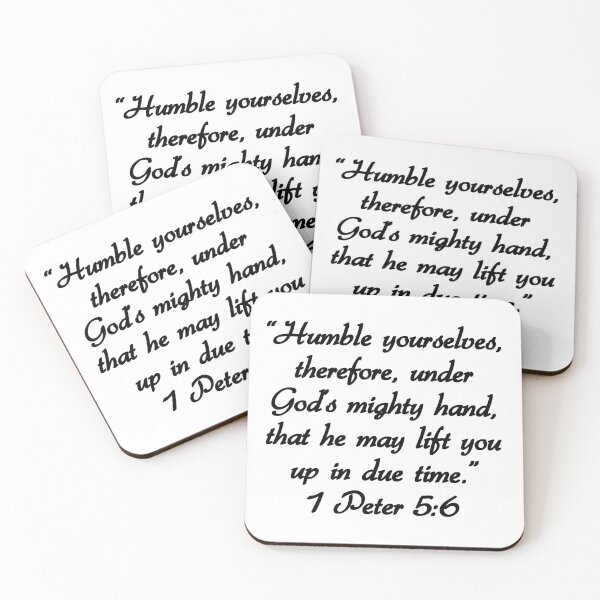 “Humble yourselves,
therefore, under
God's mighty hand,
th
“Humble yourselves,
therefore, under
God's mighty hand,
that he may lift you
up in due time.”
“Humble yourselves,
therefore, under
God's mighty hand,
that he may lift you
up in due t
1 Peter
“Humble yourselves,
therefore, under
God's mighty hand,
that he may lift you
up in due time.”
1 Peter 5:6